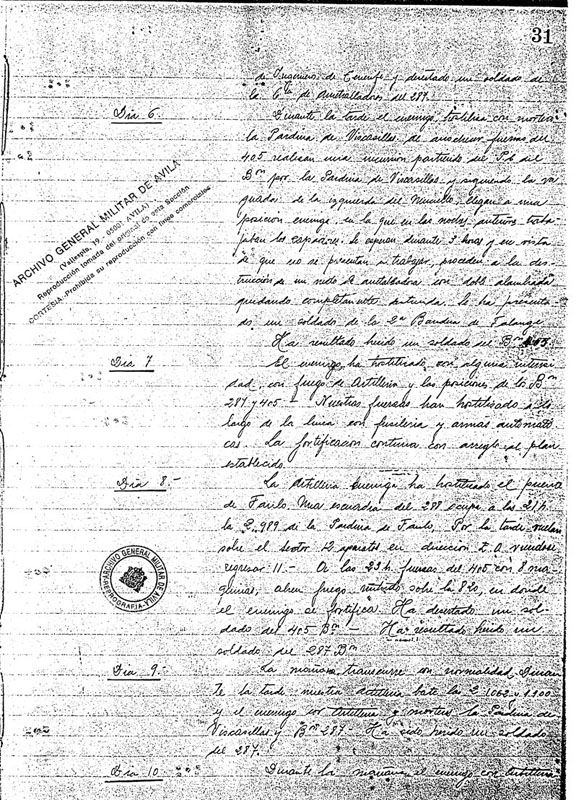 31
de Ingenieros de Tenerife y desertado un soldado de
la Cía de Ametralladoras del 287.
Dia 6.
Durante la tarde el enemigo hostiliza con mortero
la Pardina de Viscasillas, de anochecer fuerzas del
405 realizan una incursion partiendo del
Bon por la Pardina de Viscasillas y siguiendo la va
guada de la izquierda del llegan a una
posicion enemiga en la que en las noches anteriores traba
jaban los zapadores. Se esperan durante 3 horas y en vista
de que no se presentan a trabajar, proceden a la des
trucción de un nido de ametralladora con doble alambrada
quedando completamente destruida. Se ha presenta
do un soldado de la 2ª Bandera de Falange
Ha resultado herido un soldado del Bon 405
Dia 7
El enemigo ha hostilizado con alguna intensi
dad, con fuego de Artilleria y las posiciones de los Bon
287 y 405 - Nuestras fuerzas han hostilizado a lo
largo de la linea con fusileria y armas automati
cas. La fortificacion continua con arreglo al plan
establecido.
Dia 8.-
La Artilleria enemiga ha hostilizado el puente
de Fanlo. Una escuadra del 287 ocupa a las 21 h.
la 989 de la Pardina de Fanlo. Por la tarde vuelan
sobre el sector 12 aparatos en dirección E.O. viendose
regresar 11.- A las 23 h. fuerzas del 405 con 8 ma
quinas, abren fuego sobre la en donde
el enemigo se fortifica. Ha desertado un sol-
dado del 405 Bon - Ha resultado herido un
soldado del 287 Bon
Dia 9.-
La mañana transcurre con normalidad. Duran
te la tarde nuestra Artilleria bate las 1062 y 1100
y el enemigo con Artilleria y mortero la Pardina de
Viscasillas y Bon 287.- Ha sido herido un soldado
del 287.
Dia 10.-
Durante la mañana el enemigo con Artilleria
ARCHIVO GENERAL MILITAR DE AVILA
(Vallespín, 19 - 05001 AVILA)
Reproducción tomada del original de esta Sección
CORTESIA - Prohibida su reproducción con fines comerciales
ARCHIVO GENERAL MILITAR DE AVILA
REPROGRAFIA